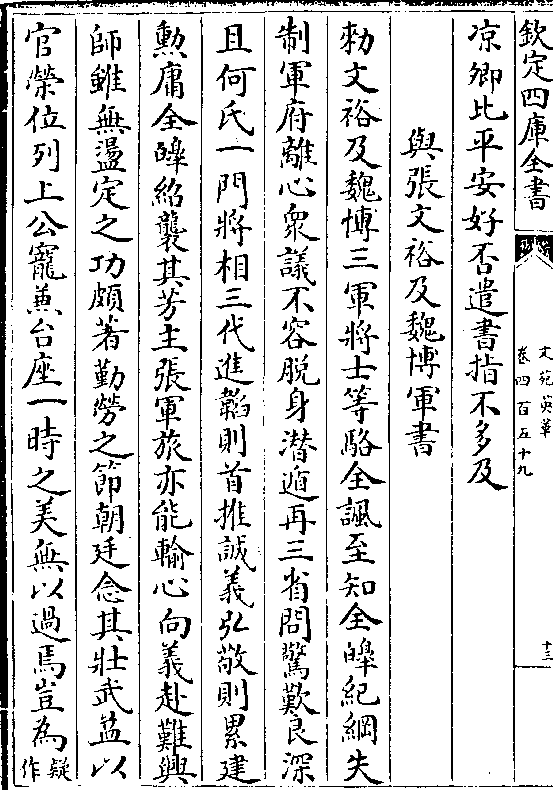 欽定四庫全書
文苑英華
卷四百五十九
十三
凉卿比平安好否遣書指不多及
與張文裕及魏博軍書
勅文裕及魏博三軍將士等駱全諷至知全皥紀綱失
制軍府離心衆議不容脱身潜遁再三省問驚歎良深
且何氏一門將相三代進韜則首推誠義弘敬則累建
勲庸全皥紹襲其芳主張軍旅亦能輸心向義赴難興
師雖無盪定之功頗著勤勞之節朝廷念其壯武益以
官榮位列上公寵兼台座一時之美無以過焉豈為疑作